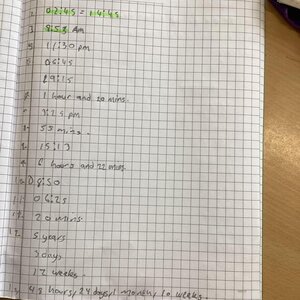 02:45 = 14:45
8:53 Am
11:30 pm
06:45
19:15
1 hour and 20 mins.
3:25 pm
55 mins.
15:13
6 hours and 22 mins.
08:50
06:25
20 mins.
5 years
3 days
12 weeks.
48 hours / 24 days / 1 month / 10 weeks